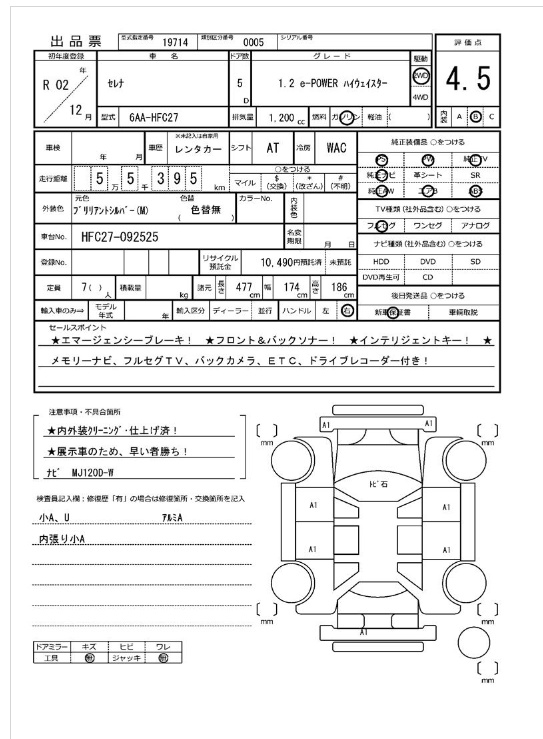 出品票 型式指定番号 19714 類別区分番号 0005 シリアル番号
初年度登録 車 名 ドア数 グレード 駆動 評価点
R 02 年 12 月 セレナ 5 D 1.2 e-POWER ハイウェイスター 2WD 4WD 4.5
型式 6AA-HFC27 排気量 1,200 cc 燃料 ガソリン 軽油 ( ) 内装 A B C
車検 年 月 車歴 ※未記入は自家用 レンタカー シフト AT 冷房 WAC 純正装備品 ○をつける
走行距離 5 5 万 3 千 9 5 km マイル ○をつける $ (交換) * (改ざん) # (不明) PS PW 純正TV
純正ナビ 革シート SR
純正AW エアB ABS
外装色 元色 ブリリアントシルバー(M) 色替 色替無 ( ) カラーNo. 内装色 TV種類 (社外品含む) ○をつける
フルセグ ワンセグ アナログ
車台No. HFC27-092525 名変期限 月 日 ナビ種類 (社外品含む) ○をつける
登録No. リサイクル預託金 10,490円預託済 未預託 HDD DVD SD
DVD再生可 CD
定員 7( )人 積載量 kg 諸元 長さ 477 cm 幅 174 cm 高さ 186 cm 後日発送品 ○をつける
輸入車のみ⇒ モデル年式 年 輸入区分 ディーラー 並行 ハンドル 左 右 新車保証書 車輌取説
セールスポイント
★エマージェンシーブレーキ! ★フロント&バックソナー! ★インテリジェントキー! ★
メモリーナビ、フルセグTV、バックカメラ、ETC、ドライブレコーダー付き!
注意事項・不具合箇所
★内外装クリーニング・仕上げ済!
★展示車のため、早い者勝ち!
ナビ MJ120D-W
検査員記入欄:修復歴「有」の場合は修復箇所・交換箇所を記入
小A、U アルミA
内張り小A
ドアミラー キズ ヒビ ワレ
工具 無 ジャッキ 無
A1 A1
mm mm
トビ石
A1 A1
A1 A1
mm mm
A1
mm